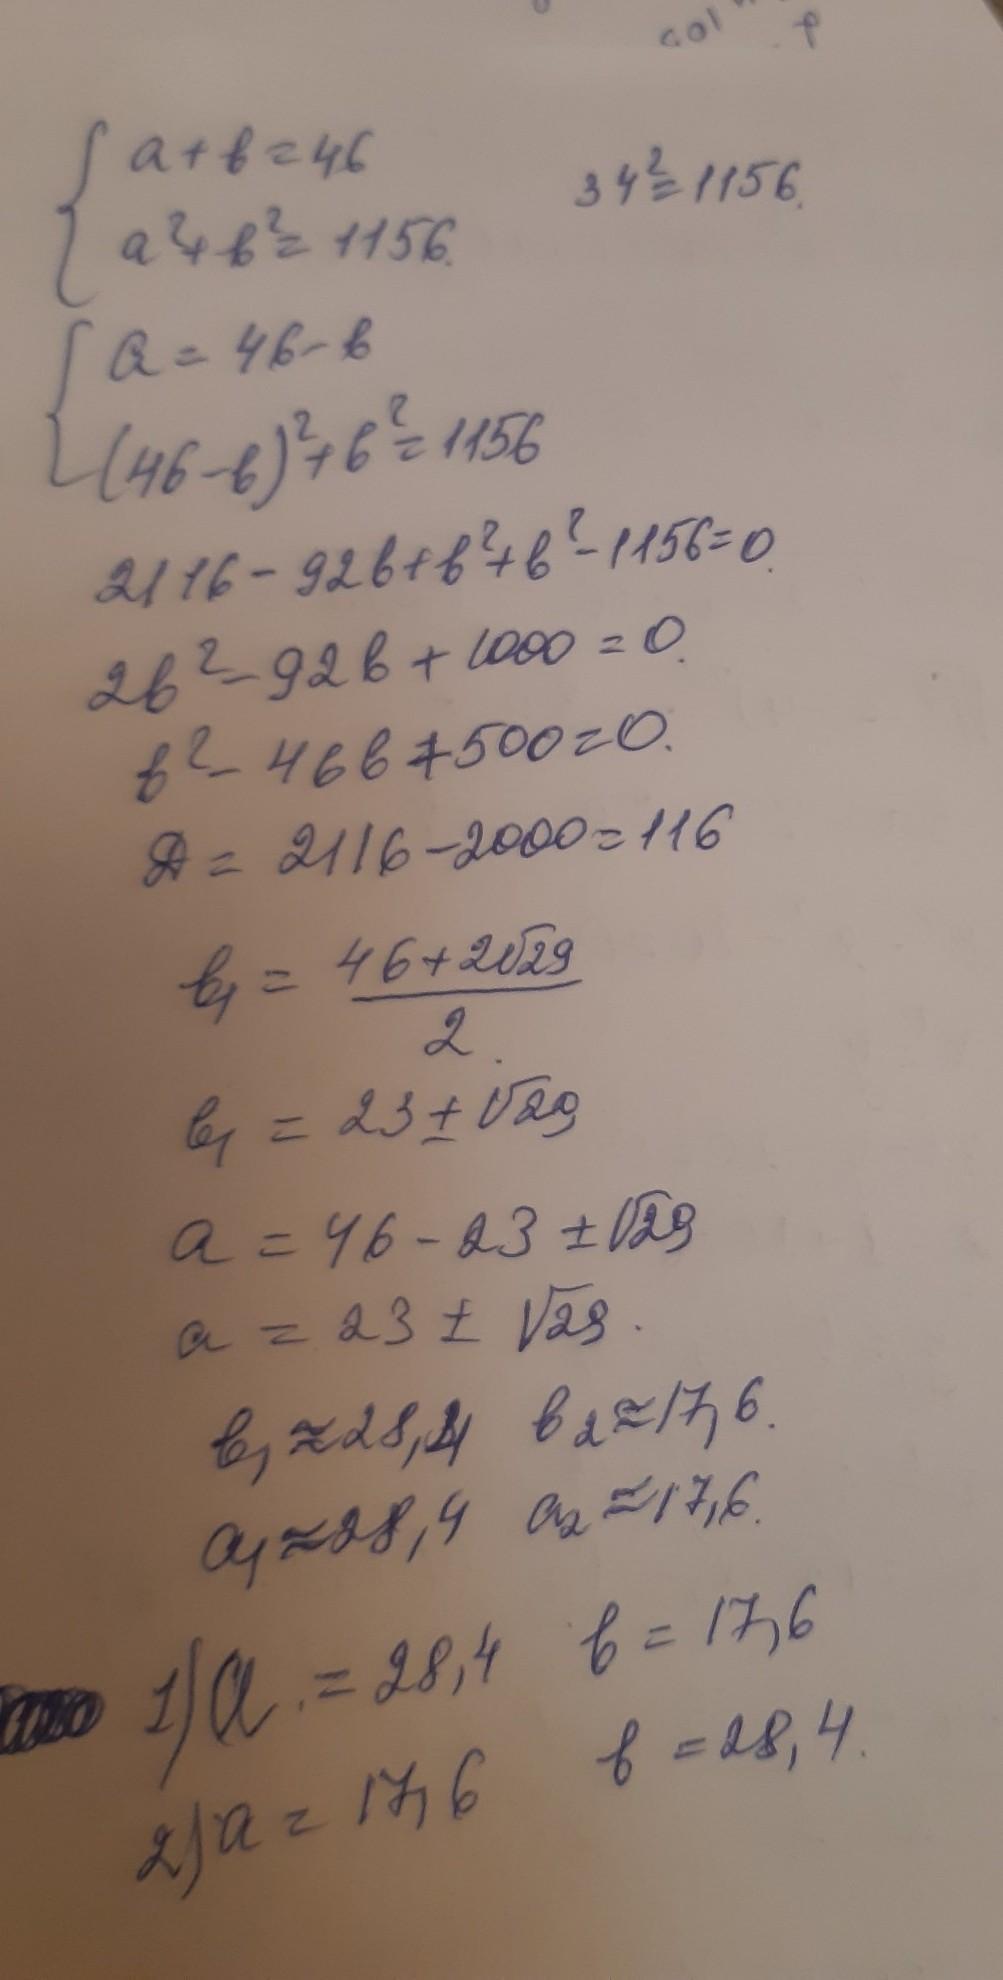 a + b = 46
34² = 1156.
a² + b² = 1156.
a = 46 - b
(46 - b)² + b² = 1156
2116 - 92b + b² + b² - 1156 = 0.
2b² - 92b + 1000 = 0.
b² - 46b + 500 = 0.
D = 2116 - 2000 = 116
b₁ = (46 + 2√29) / 2.
b₁ = 23 ± √29
a = 46 - 23 ± √29
a = 23 ± √29.
b₁ ≈ 28,4 b₂ ≈ 17,6.
a₁ ≈ 28,4 a₂ ≈ 17,6.
1) a = 28,4 b = 17,6
2) a = 17,6 b = 28,4.